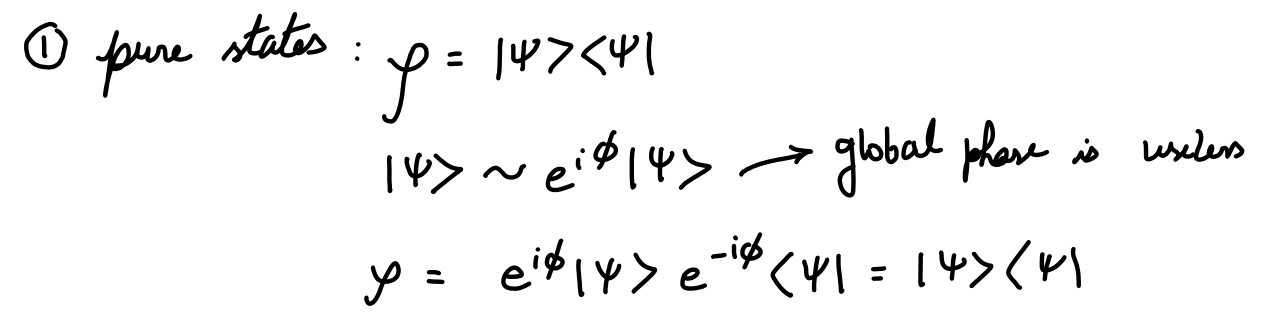 ① pure states : ρ = |ψ><ψ|
|ψ> ~ e^{iϕ}|ψ> → global phase is useless
ρ = e^{iϕ}|ψ> e^{-iϕ}<ψ| = |ψ><ψ|